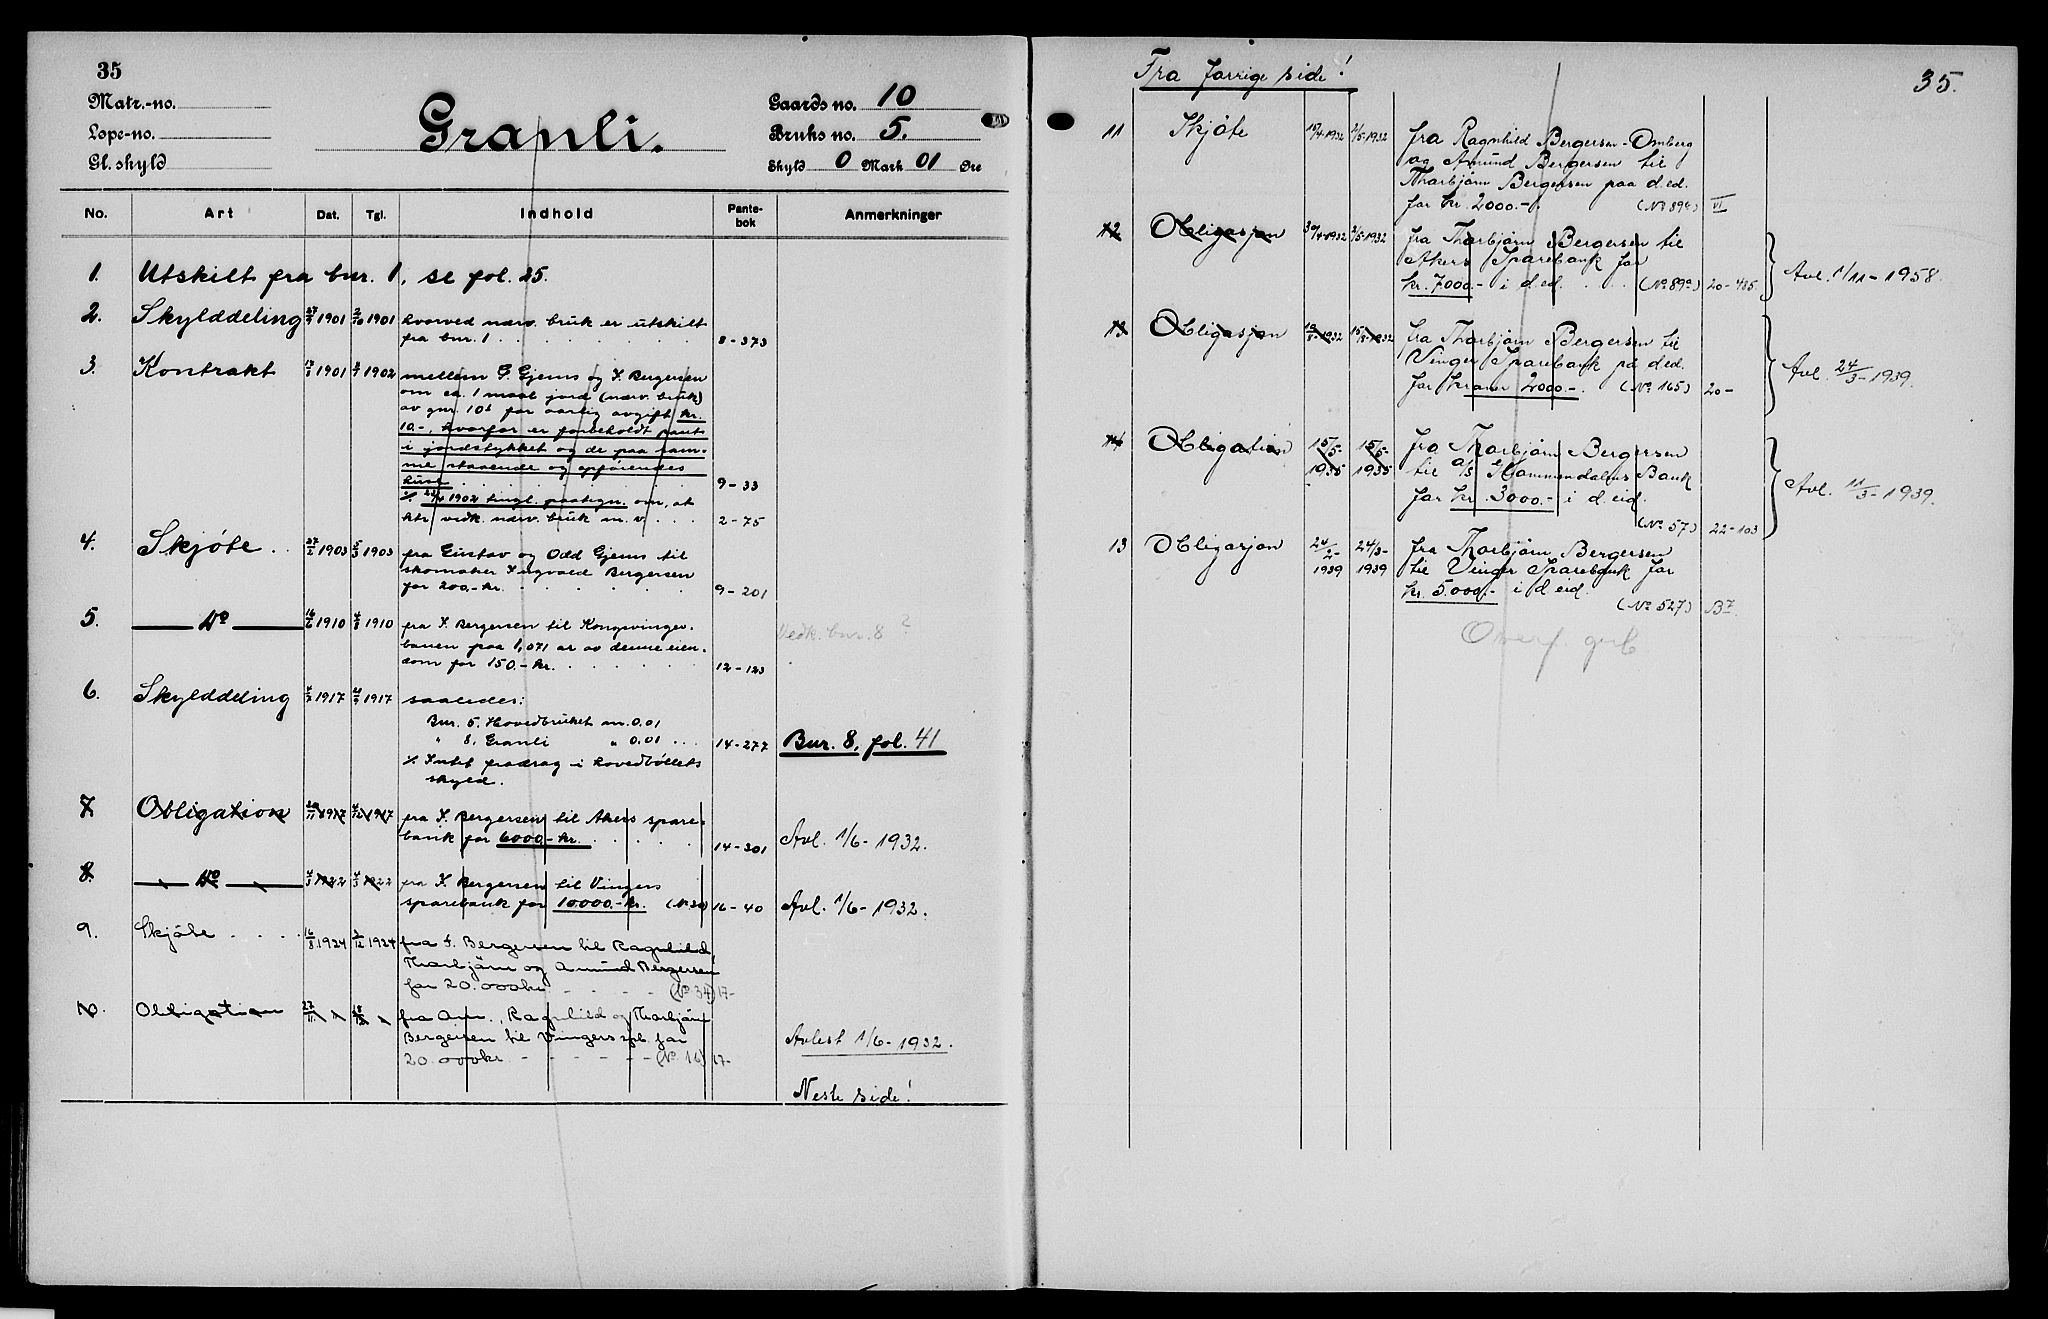 35
Matr.-no.
Løpe-no.
Gl. skyld
Granli.
Gaards no. 10
Bruks no. 5.
Skyld 0 Mark 01 Øre
No. Art Dat. Tgl. Indhold Pante-bok Anmerkninger
1. Utskilt fra bnr. 1, se fol. 25.
2. Skylddeling 1901 1901 hvorved nærv. bruk er utskilt
fra bnr. 1 . . . 8-373
3. Kontrakt 1901 1902 mellem G. Gjems og I. Bergersen
om ca. 1 maal jord (nærv. bruk)
av gnr. 10¹ for aarlig avgift kr.
10.-, hvorfor er forbeholdt pant
i jordstykket og de paa sam-
me staaende og opførendes
huse . . . 9-33
1902 tingl. paategn. om, at
ktr. vedk. nærv. bruk m. v. . . . 2-75
4. Skjøte . . 1903 1903 fra Gustav og Odd Gjems til
skomaker Ingvald Bergersen
for 200.- kr. . . . 9-201
5. do 1910 1910 fra I. Bergersen til Kongsvinger-
banen paa 1,071 ar av denne eien-
dom for 150.- kr. . . . 12-123
Vedk. bnr. 8 ?
6. Skylddeling 1917 1917 saaledes:
Bnr. 5. Hovedbruket m. 0.01
" 8, Granli " 0.01 . . . 14-277 Bnr. 8, fol. 41
Intet fradrag i hovedbøllets
skyld.
7. Obligation 1917 1917 fra I. Bergersen til Akers spare-
bank for 6000.- kr. . . . 14-301 Avl. 1/6-1932.
8. do 1922 1922 fra I. Bergersen til Vingers
sparebank for 10000.- kr. (No 30) 16-40 Avl. 1/6-1932.
9. Skjøte . . . 16/8 1924 2/12 1924 fra I. Bergersen til Ragnhild,
Thorbjørn og Amund Bergersen
for 20.000 kr. - - - (No 34) 17-
10. Obligation 27/11 " " fra Am., Ragnhild og Thorbjørn
Bergersen til Vingers spb. for
20.000 kr. - - - (No 16) 17- Avlest 1/6-1932.
Neste side!
Fra forrige side!
35.
11 Skjøte 15/4-1932 2/5-1932 fra Ragnhild Bergersen-Omberg
og Amund Bergersen til
Thorbjørn Bergersen paa d. ed.
for kr. 2000.-. (No 898) VI
12 Obligasjon 30/4-1932 2/5-1932 fra Thorbjørn Bergersen til
Akers Sparebank for
kr. 7000.- i d. ed. . . . (No 899) 20-485 Avl. 1/11-1958.
13 Obligasjon 10/8-1932 15/8-1932 fra Thorbjørn Bergersen til
Vinger Sparebank på d. ed.
for kroner 2000.-. (No 165) 20- Avl. 24/3-1939.
14 Obligation 15/5-1935 15/5-1935 fra Thorbjørn Bergersen
til A/S Hammerdalens Bank
for kr. 3000.- i d. eid.
(No 57) 22-103 Avl. 11/3-1939.
13 Obligasjon 24/2-1939 24/3-1939 fra Thorbjørn Bergersen
til Vinger Sparebank for
kr. 5.000.- i d. eid.
(No 527) B7.
Overf.